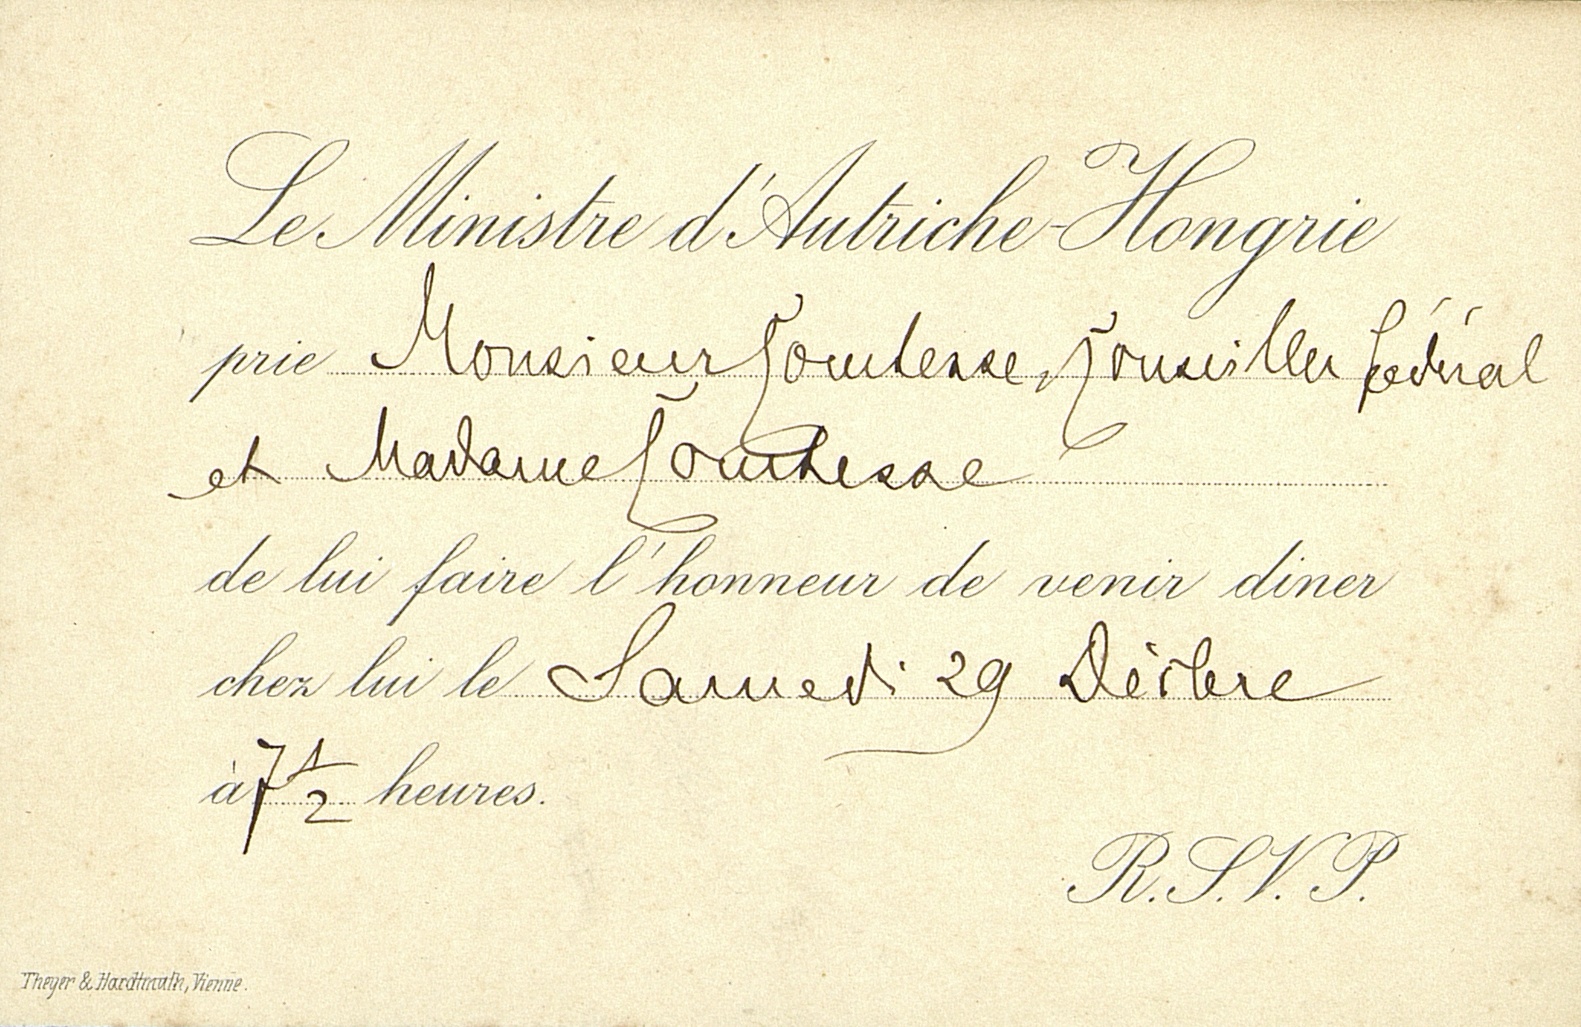 Le Ministre d'Autriche-Hongrie
prie Monsieur Comtesse, Conseiller fédéral
et Madame Comtesse
de lui faire l'honneur de venir diner
chez lui le Samedi 29 Décbre
à 7 1/2 heures.
R.S.V.P.
Theyer & Hardtmuth, Vienne.